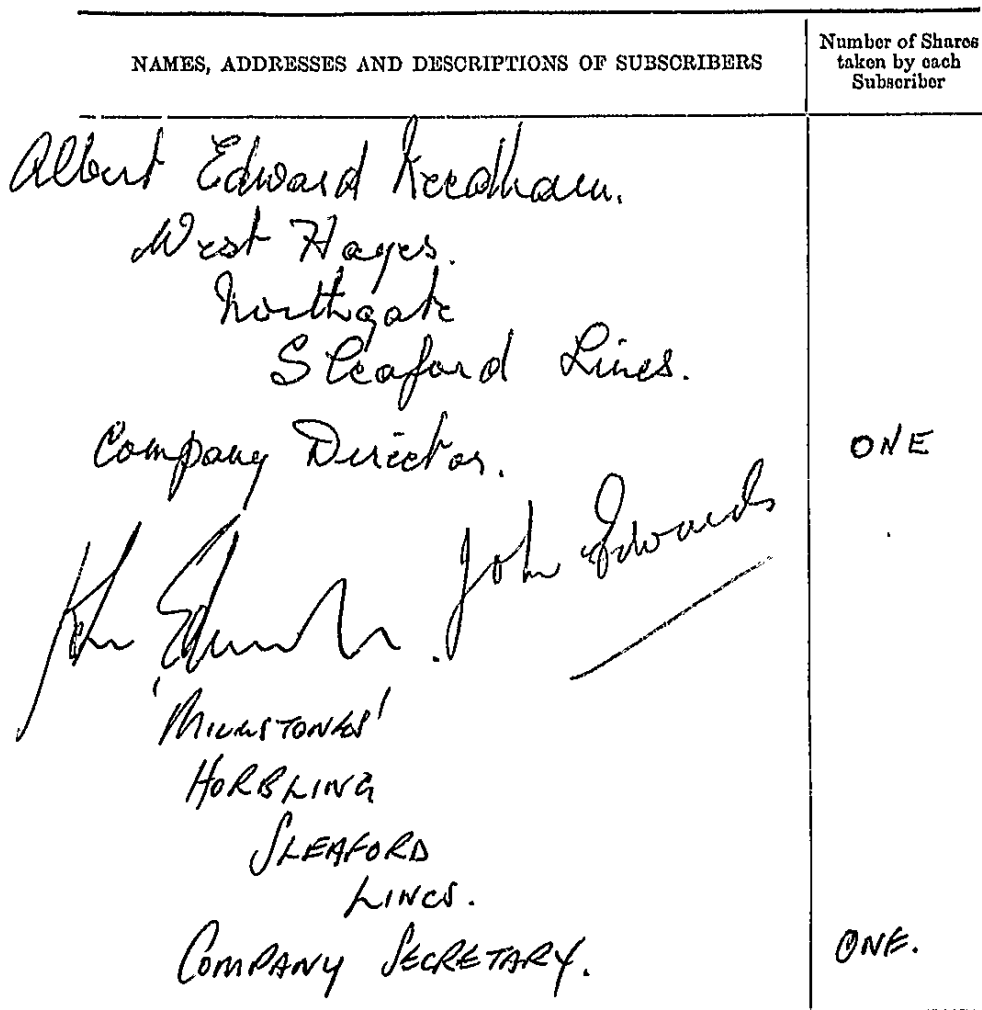 NAMES, ADDRESSES AND DESCRIPTIONS OF SUBSCRIBERS
Number of Shares
taken by each
Subscriber
Albert Edward Needham.
West Hayes.
Northgate
Sleaford Lincs.
Company Director.
ONE
John Edwards. John Edwards
'MILESTONES'
HORBLING
SLEAFORD
LINCS.
COMPANY SECRETARY.
ONE.